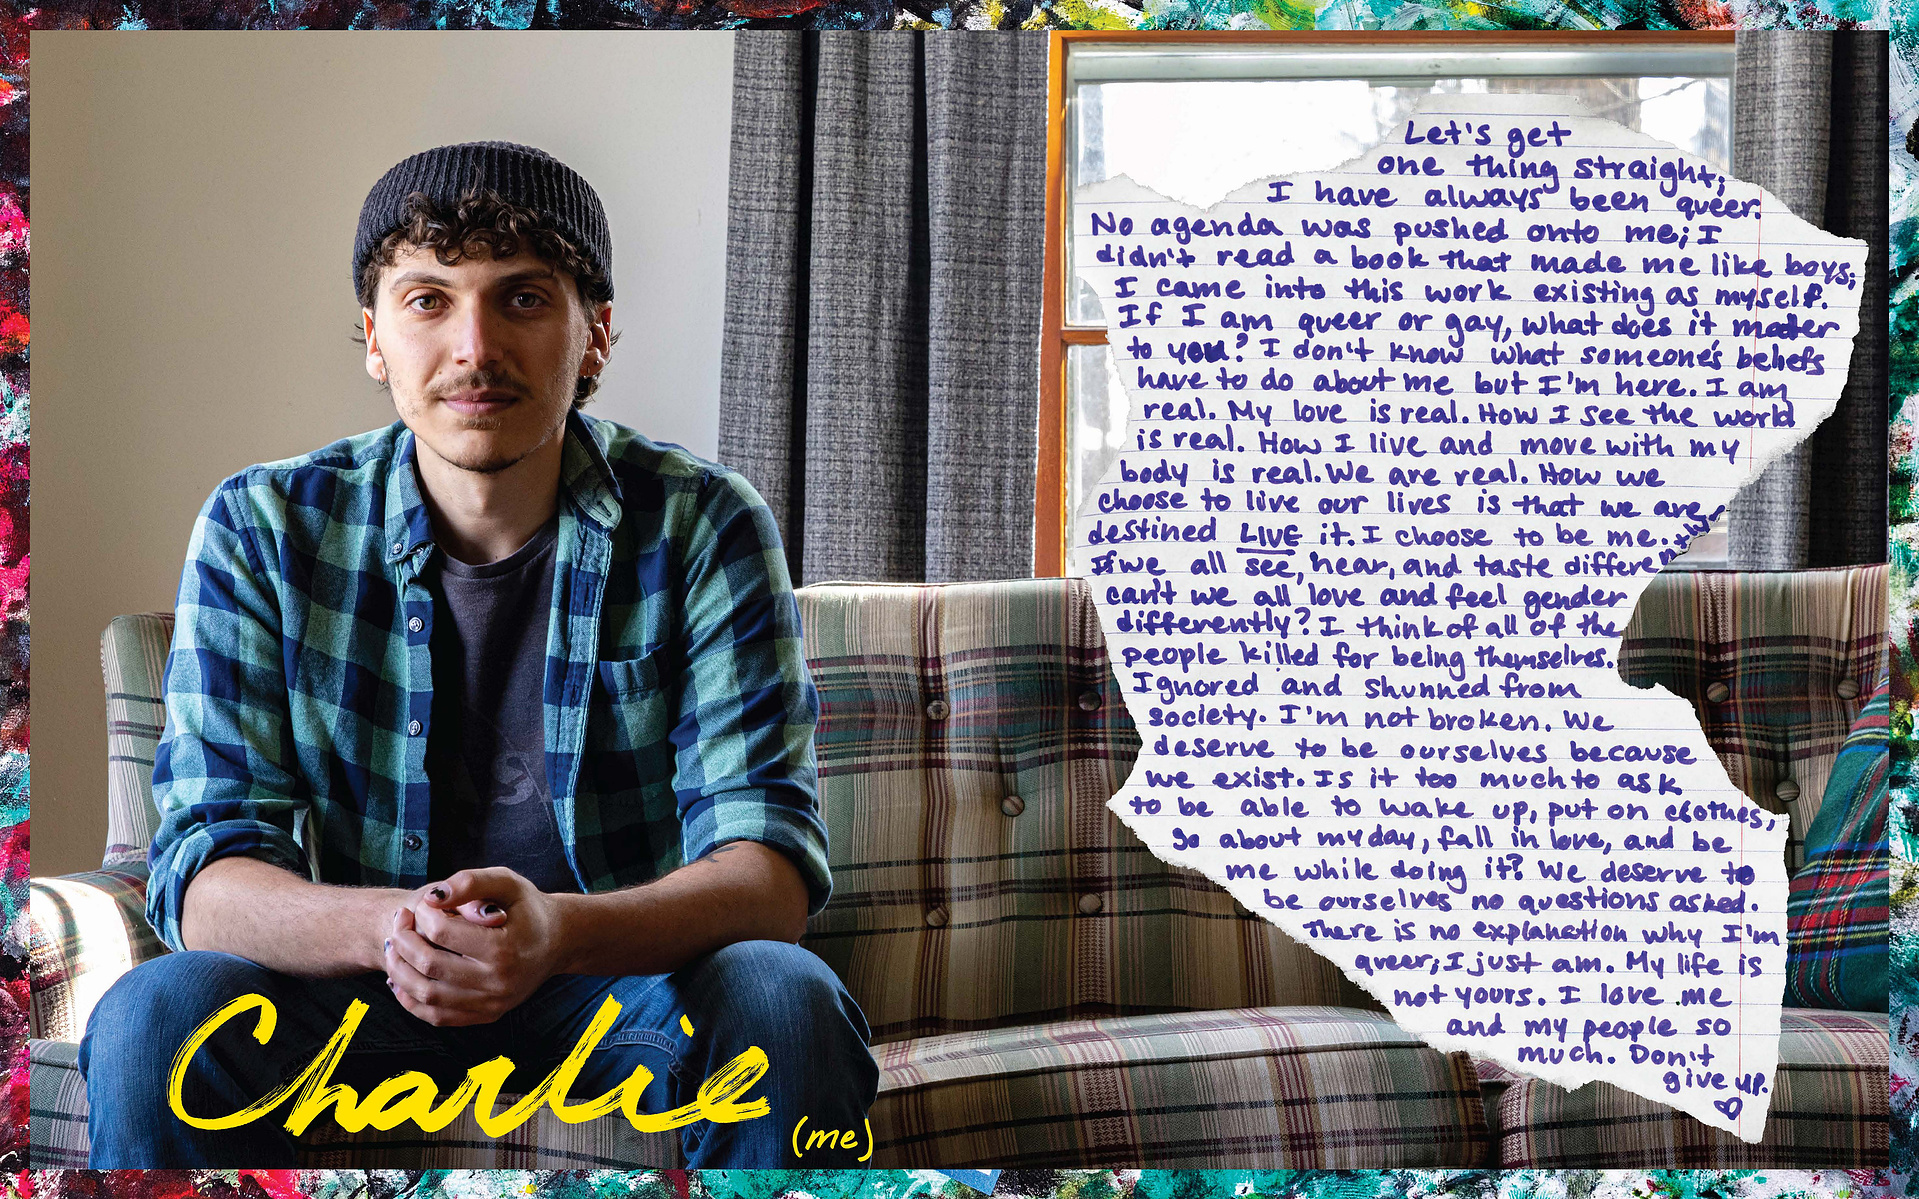 Let's get
one thing straight;
I have always been queer.
No agenda was pushed onto me; I
didn't read a book that made me like boys;
I came into this work existing as myself.
If I am queer or gay, what does it matter
to you? I don't know what someone's beliefs
have to do about me but I'm here. I am
real. My love is real. How I see the world
is real. How I live and move with my
body is real. We are real. How we
choose to live our lives is that we are
destined LIVE it. I choose to be me.
If we all see, hear, and taste differently,
can't we all love and feel gender
differently? I think of all of the
people killed for being themselves.
Ignored and shunned from
society. I'm not broken. We
deserve to be ourselves because
we exist. Is it too much to ask
to be able to wake up, put on clothes,
go about my day, fall in love, and be
me while doing it? We deserve to
be ourselves no questions asked.
There is no explanation why I'm
queer; I just am. My life is
not yours. I love me
and my people so
much. Don't
give up.
Charlie
(me)